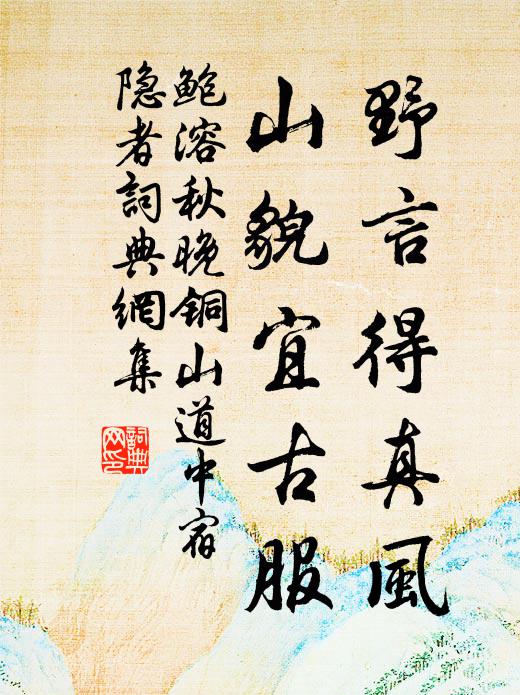 野言得真風
山貌宜古服
鲍溶秋晚铜山道中宿
隐者詞典網集
詞典
网印